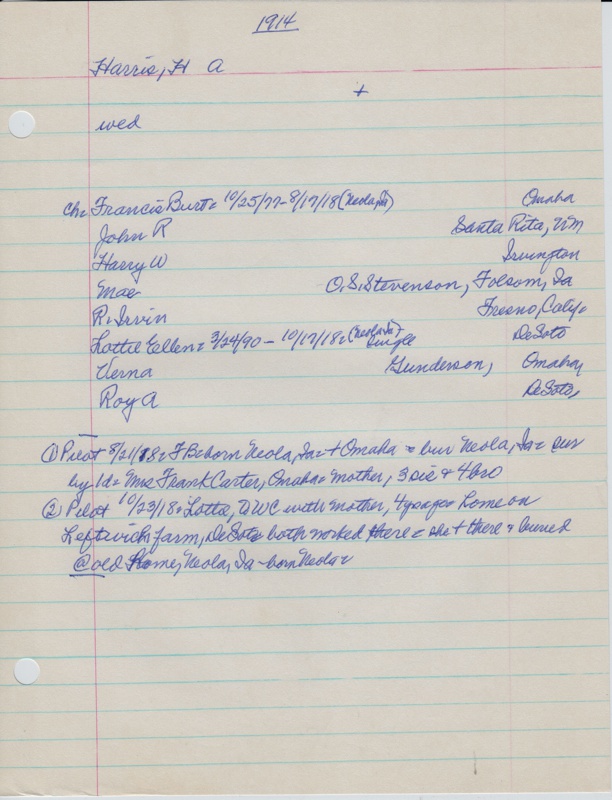 1914
Harris, H A
+
wed
ch= Francis Burt= 10/25/77-8/17/18 (Neola, Ia) Omaha
John R Santa Rita, NM
Harry W Irvington
Mae O.S. Stevenson, Folsom, Ia
R. Irvin Fresno, Calif=
Lottie Ellen= 3/24/90 - 10/17/18= (Neola Ia) Single DeSoto
Verna Gunderson, Omaha,
Roy A DeSoto,
① Pilot 8/21/18= FB born Neola, Ia= + Omaha = bur Neola, Ia= sur
by 1d= Mrs Frank Carter, Omaha= mother, 3 sis & 4 bro
② Pilot 10/23/18= Lotta, DWC with mother, 4 yrs ago= home on
Leftwich farm, DeSoto both worked there = she + there & buried
@ old home, Neola, Ia - born Neola=